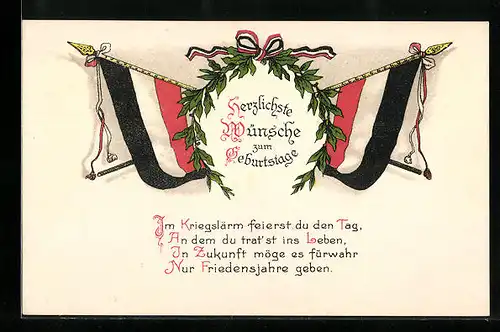 Herzlichste
Wünsche
zum
Geburtstage
Im Kriegslärm feierst du den Tag,
An dem du trat'st ins Leben,
In Zukunft möge es fürwahr
Nur Friedensjahre geben.